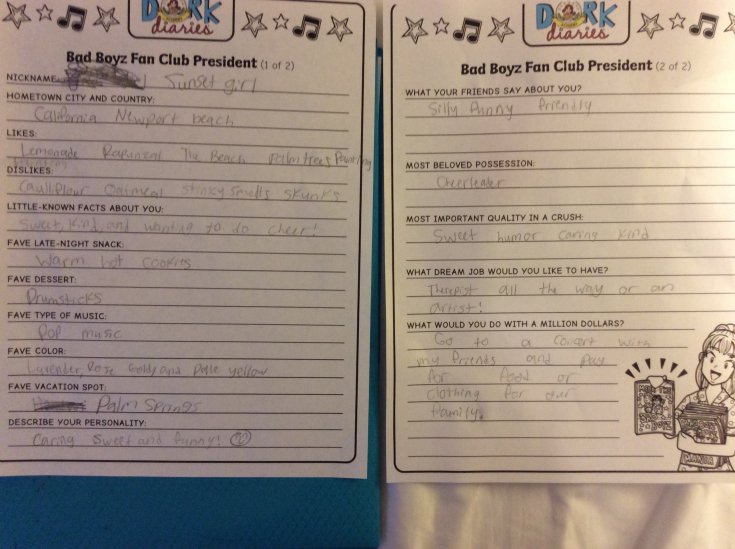 DORK
diaries
Bad Boyz Fan Club President (1 of 2)
NICKNAME: Sunset girl
HOMETOWN CITY AND COUNTRY:
California Newport beach
LIKES:
Lemonade Rapunzal The Beach Palm trees Painting
DISLIKES:
Caulliflour Oatmeal Stinky smells skunks
LITTLE-KNOWN FACTS ABOUT YOU:
Sweet, kind, and wanting to do cheer!
FAVE LATE-NIGHT SNACK:
Warm hot cookies
FAVE DESSERT:
Drumsticks
FAVE TYPE OF MUSIC:
Pop music
FAVE COLOR:
Lavender, Rose Gold, and Pale yellow
FAVE VACATION SPOT:
Palm Springs
DESCRIBE YOUR PERSONALITY:
Caring Sweet and funny!
DORK
diaries
Bad Boyz Fan Club President (2 of 2)
WHAT YOUR FRIENDS SAY ABOUT YOU?
Silly funny friendly
MOST BELOVED POSSESSION:
Cheerleader
MOST IMPORTANT QUALITY IN A CRUSH:
Sweet humor caring kind
WHAT DREAM JOB WOULD YOU LIKE TO HAVE?
Therepist all the way or an
artist!
WHAT WOULD YOU DO WITH A MILLION DOLLARS?
Go to a concert with
my friends and pay
for food or
clothing for our
family.